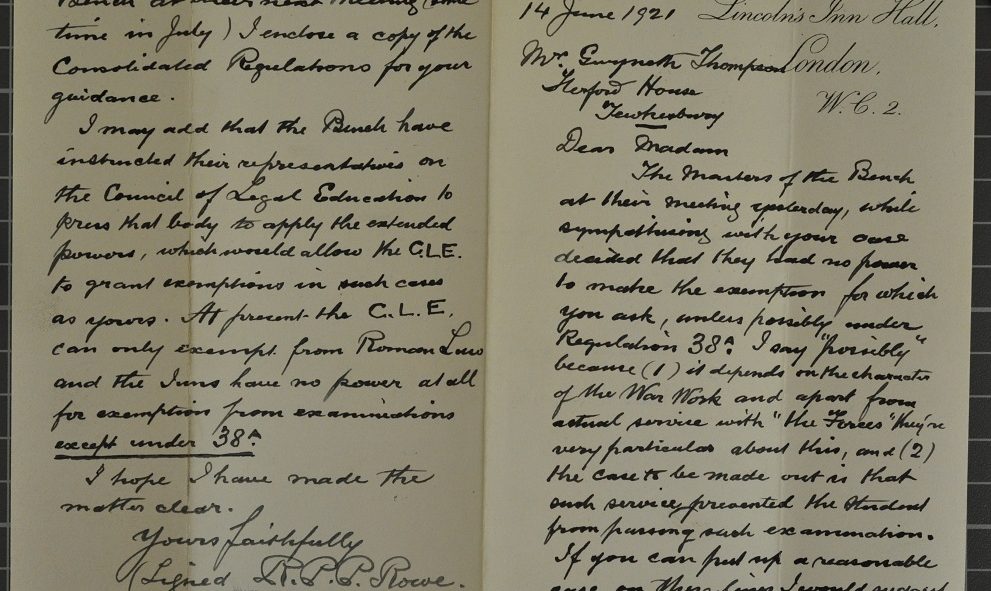 14 June 1921 Lincoln's Inn Hall,
London,
W.C. 2.
Mrs. Gwyneth Thompson
Herford House
Tewkesbury
Dear Madam
The Masters of the Bench
at their meeting yesterday, while
sympathising with your case
decided that they had no power
to make the exemption for which
you ask, unless possibly under
Regulation 38A. I say "possibly"
because (1) it depends on the character
of the War Work and apart from
actual service with "the Forces" they're
very particular about this, and (2)
the case to be made out is that
such service prevented the student
from passing such examination.
If you can put up a reasonable
case on these lines I would suggest
Bench at their next meeting (some
time in July) I enclose a copy of the
Consolidated Regulations for your
guidance.
I may add that the Bench have
instructed their representatives on
the Council of Legal Education to
press that body to apply the extended
powers, which would allow the C.L.E.
to grant exemptions in such cases
as yours. At present the C.L.E.
can only exempt from Roman Law
and the Inns have no power at all
for exemption from examinations
except under 38A.
I hope I have made the
matter clear.
Yours faithfully
(Signed R.P.P. Rowe.